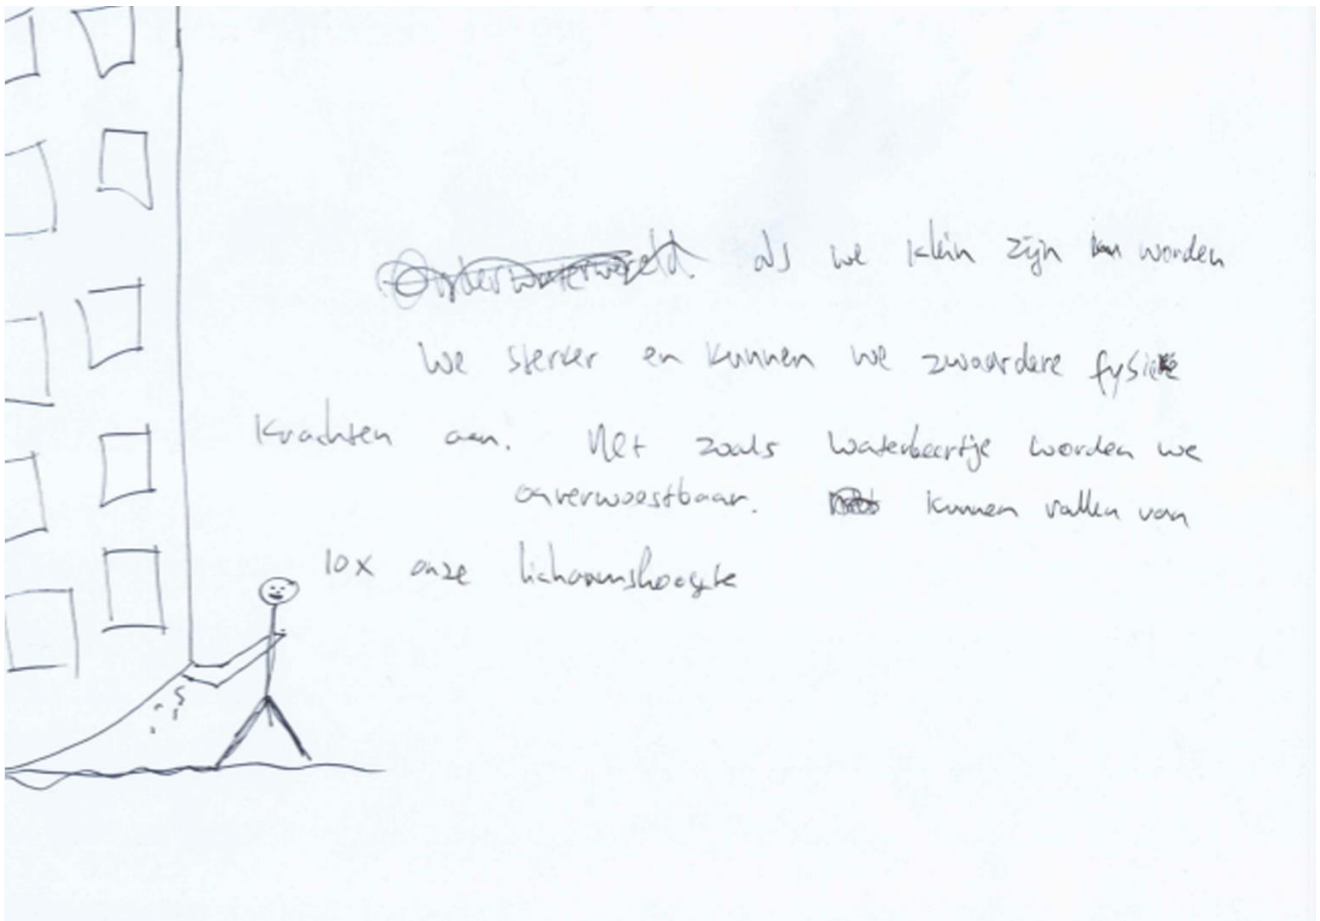 als we klein zijn worden
we sterker en kunnen we zwaardere fysieke
krachten aan. Net zoals waterbeertje worden we
onverwoestbaar. kunnen vallen van
10x onze lichaamshoogte